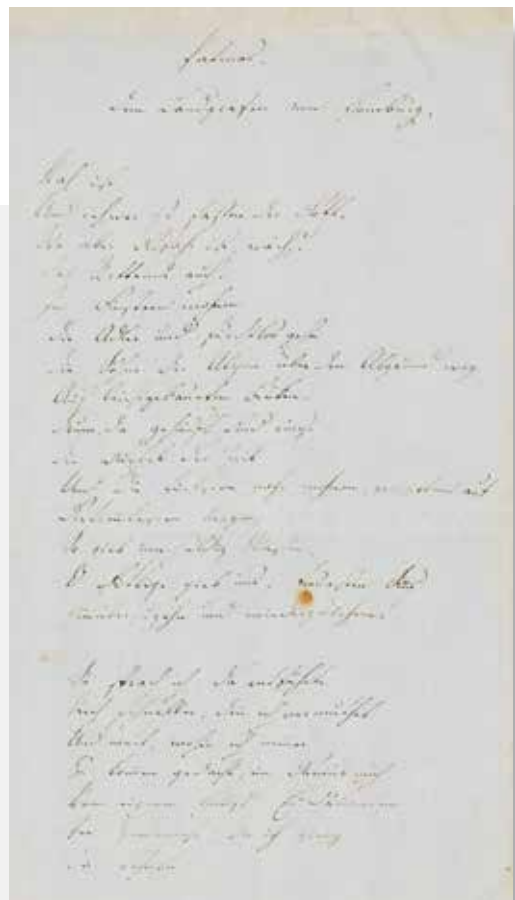 Patmos.
Dem Landgrafen von Homburg.
Nah ist
Und schwer zu fassen der Gott.
Wo aber Gefahr ist, wächst
Das Rettende auch.
Im Finstern wohnen
Die Adler und furchtlos gehn
Die Söhne der Alpen über den Abgrund weg
Auf leichtgebaueten Brüken.
Drum, da gehäuft sind rings
Die Gipfel der Zeit
Und die Liebsten nah wohnen, ermattend auf
Getrenntesten Bergen,
So gieb
O Fittige gieb uns, treuesten Sinns
Hinüberzugehn und wiederzukehren.
So sprach ich, da entführte
Mich schneller, denn ich vermuthet
Und weit, wohin ich nimmer
Zu kommen gedacht, ein Genius mich
Vom eigenen Hauß. Es dämmerten
Im Zwielicht, da ich gieng